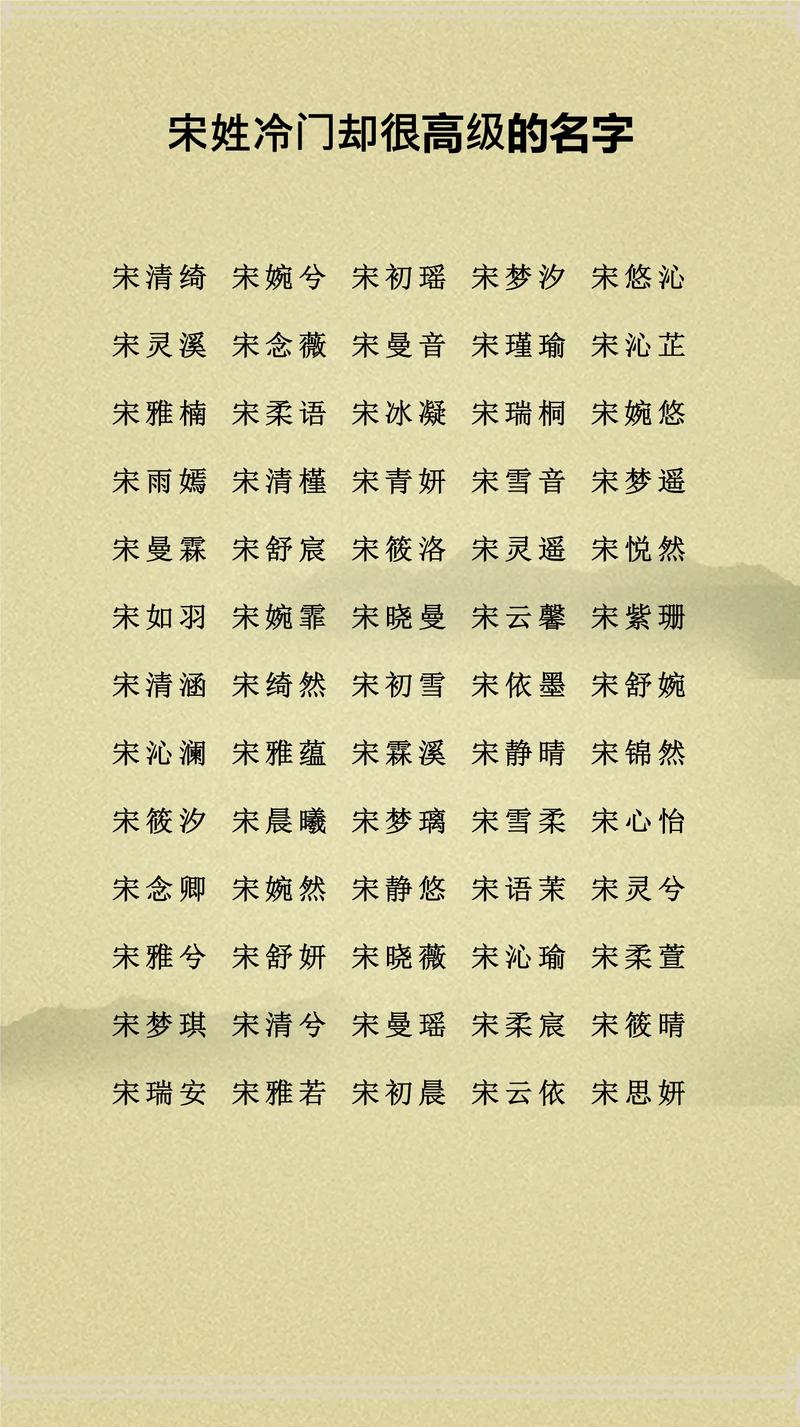 宋姓冷门却很高级的名字
宋清绮 宋婉兮 宋初瑶 宋梦汐 宋悠沁
宋灵溪 宋念薇 宋曼音 宋瑾瑜 宋沁芷
宋雅楠 宋柔语 宋冰凝 宋瑞桐 宋婉悠
宋雨嫣 宋清槿 宋青妍 宋雪音 宋梦遥
宋曼霖 宋舒宸 宋筱洛 宋灵遥 宋悦然
宋如羽 宋婉霏 宋晓曼 宋云馨 宋紫珊
宋清涵 宋绮然 宋初雪 宋依墨 宋舒婉
宋沁澜 宋雅蕴 宋霖溪 宋静晴 宋锦然
宋筱汐 宋晨曦 宋梦璃 宋雪柔 宋心怡
宋念卿 宋婉然 宋静悠 宋语茉 宋灵兮
宋雅兮 宋舒妍 宋晓薇 宋沁瑜 宋柔萱
宋梦琪 宋清兮 宋曼瑶 宋柔宸 宋筱晴
宋瑞安 宋雅若 宋初晨 宋云依 宋思妍